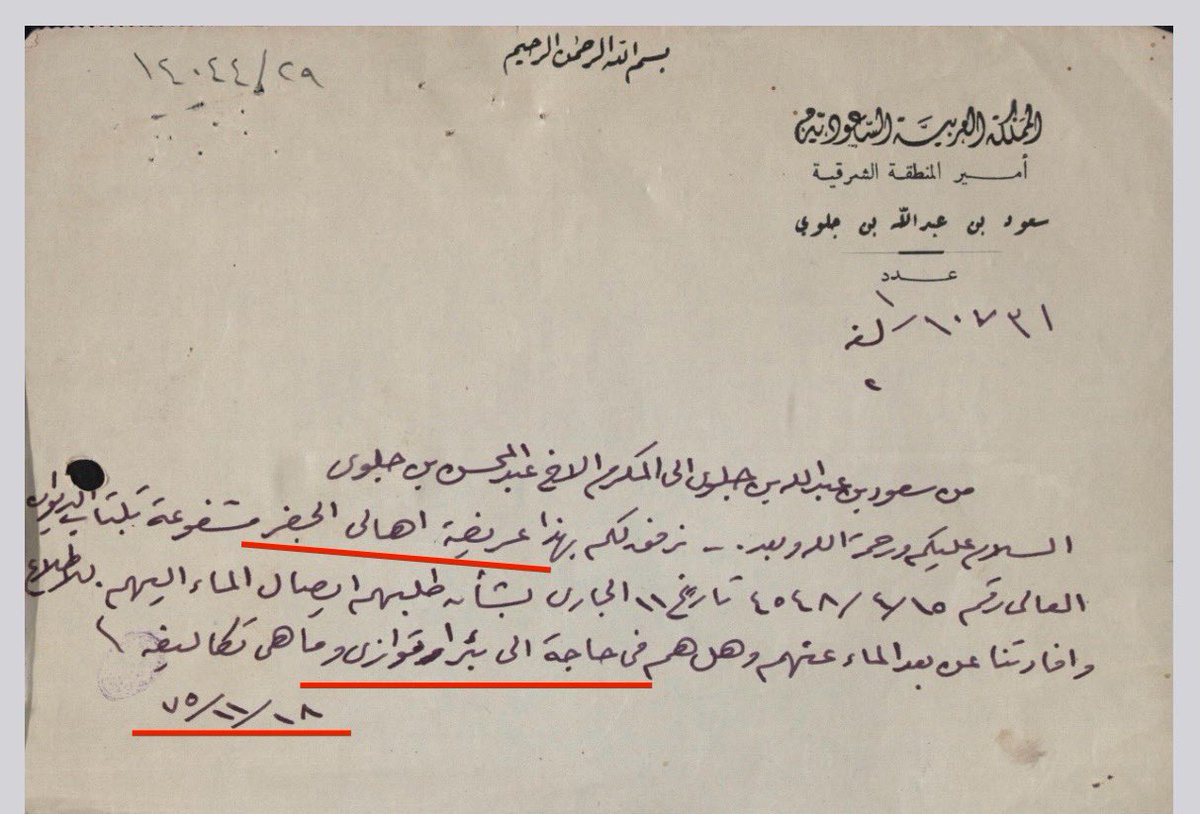 بسم الله الرحمن الرحيم
١٤٠٤٤/٢٩
المملكة العربية السعودية
أمير المنطقة الشرقية
سعود بن عبدالله بن جلوي
عدد
١٠٧٣١/
من سعود بن عبدالله بن جلوى الى المكرم الاخ عبدالمحسن بن جلوى
السلام عليكم ورحمة الله وبعد . - نرفق لكم بهذا عريضة اهالى الجفر مشفوعة بكتاب الديوان
العالى رقم ٤٥٤٨/٤/١٥ تاريخ ١١ الجارى بشأن طلبهم ايصال الماء اليهم . للاطلاع
وافادتنا عن بعد الماء عنهم وهل هم فى حاجة الى بئر ارتوازى وما هى تكاليفه
٧٥/١١/١٨